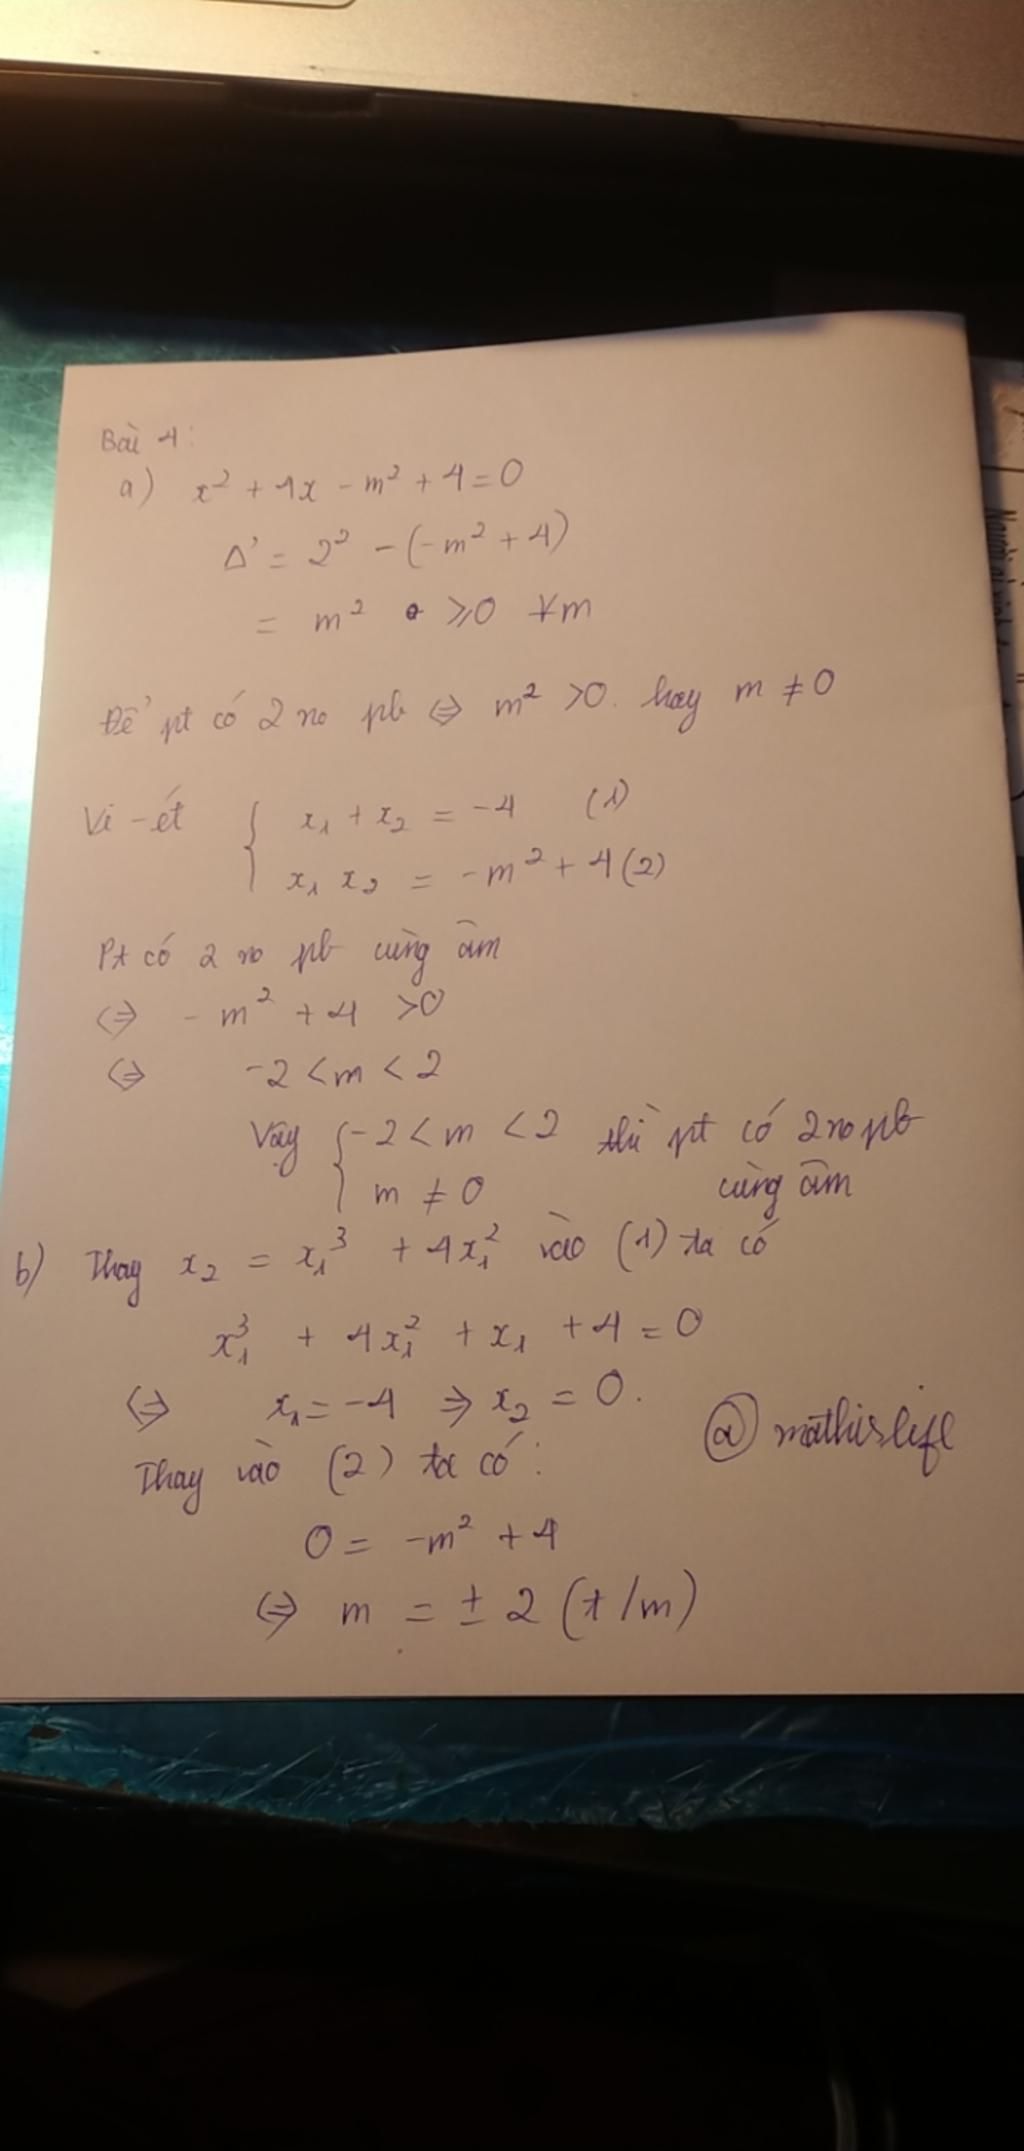 Bài 4:
a) x² + 4x - m² + 4 = 0
Δ' = 2² - (-m² + 4)
= m² ≥ 0 ∀m
Để pt có 2 no pb ⇔ m² > 0. hay m ≠ 0
Vi-ét { x₁ + x₂ = -4 (1)
x₁ x₂ = -m² + 4 (2)
Pt có 2 no pb cùng âm
⇔ -m² + 4 > 0
⇔ -2 < m < 2
Vậy { -2 < m < 2 thì pt có 2 no pb
m ≠ 0 cùng âm
b) Thay x₂ = x₁³ + 4x₁² vào (1) ta có
x₁³ + 4x₁² + x₁ + 4 = 0
⇔ x₁ = -4 ⇒ x₂ = 0.
@mathislife
Thay vào (2) ta có:
0 = -m² + 4
⇔ m = ± 2 (t/m)